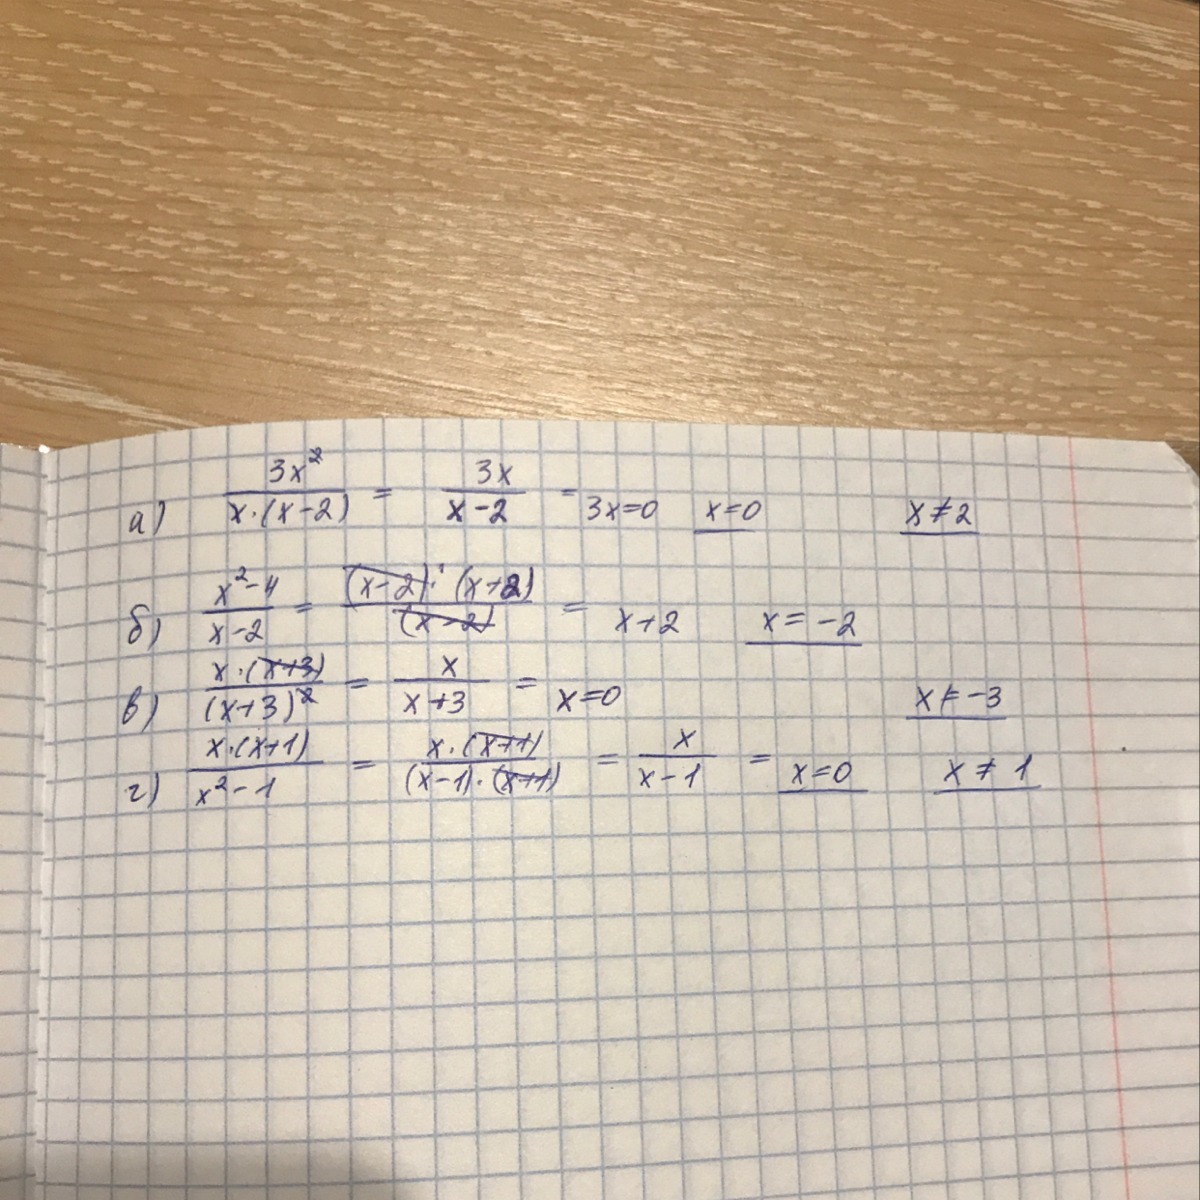 а) 3x²/x·(x-2) = 3x/x-2 = 3x=0 x=0 x≠2
б) x²-4/x-2 = (x-2)·(x+2)/(x-2) = x+2 x=-2
в) x·(x+3)/(x+3)² = x/x+3 = x=0 x≠-3
г) x·(x+1)/x²-1 = x·(x+1)/(x-1)·(x+1) = x/x-1 = x=0 x≠1